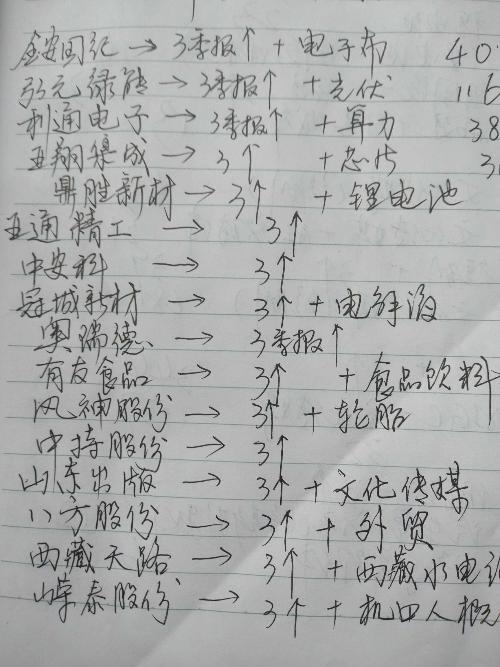 金安国纪 → 3季报↑ + 电子布 40
弘元绿能 → 3季报↑ + 光伏 116
利通电子 → 3季报↑ + 算力 38
亚翔集成 → 3↑ + 芯片 3
鼎胜新材 → 3↑ + 锂电池
亚通精工 → 3↑
中安科 → 3↑
冠城新材 → 3↑ + 电解液
奥瑞德 → 3季报↑
有友食品 → 3↑ + 食品饮料
风神股份 → 3↑ + 轮胎
中持股份 → 3↑
山东出版 → 3↑ + 文化传媒
八方股份 → 3↑ + 外贸
西藏天路 → 3↑ + 西藏水电
嵘泰股份 → 3↑ + 机四人概